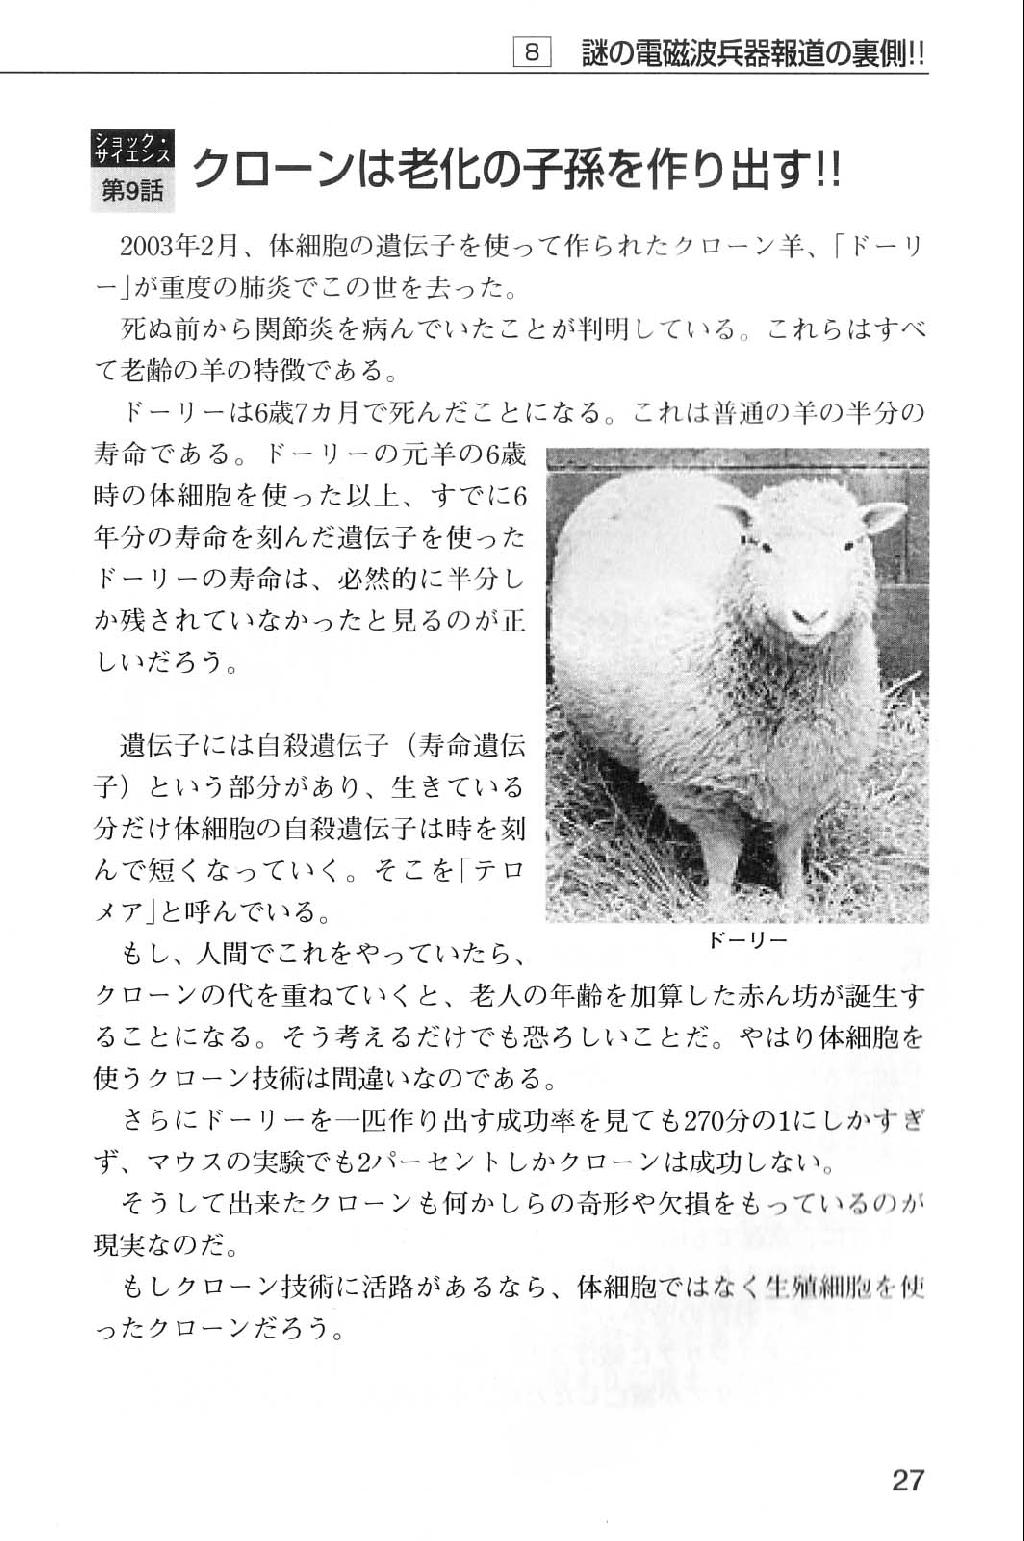 8 謎の電磁波兵器報道の裏側!!
ショック・
サイエンス
第9話
クローンは老化の子孫を作り出す!!
2003年2月、体細胞の遺伝子を使って作られたクローン羊、「ドーリ
ー」が重度の肺炎でこの世を去った。
死ぬ前から関節炎を病んでいたことが判明している。これらはすべ
て老齢の羊の特徴である。
ドーリーは6歳7カ月で死んだことになる。これは普通の羊の半分の
寿命である。ドーリーの元羊の6歳
時の体細胞を使った以上、すでに6
年分の寿命を刻んだ遺伝子を使った
ドーリーの寿命は、必然的に半分し
か残されていなかったと見るのが正
しいだろう。
遺伝子には自殺遺伝子（寿命遺伝
子）という部分があり、生きている
分だけ体細胞の自殺遺伝子は時を刻
んで短くなっていく。そこを「テロ
メア」と呼んでいる。
もし、人間でこれをやっていたら、
クローンの代を重ねていくと、老人の年齢を加算した赤ん坊が誕生す
ることになる。そう考えるだけでも恐ろしいことだ。やはり体細胞を
使うクローン技術は間違いなのである。
さらにドーリーを一匹作り出す成功率を見ても270分の1にしかすぎ
ず、マウスの実験でも2パーセントしかクローンは成功しない。
そうして出来たクローンも何かしらの奇形や欠損をもっているのが
現実なのだ。
もしクローン技術に活路があるなら、体細胞ではなく生殖細胞を使
ったクローンだろう。
ドーリー
27